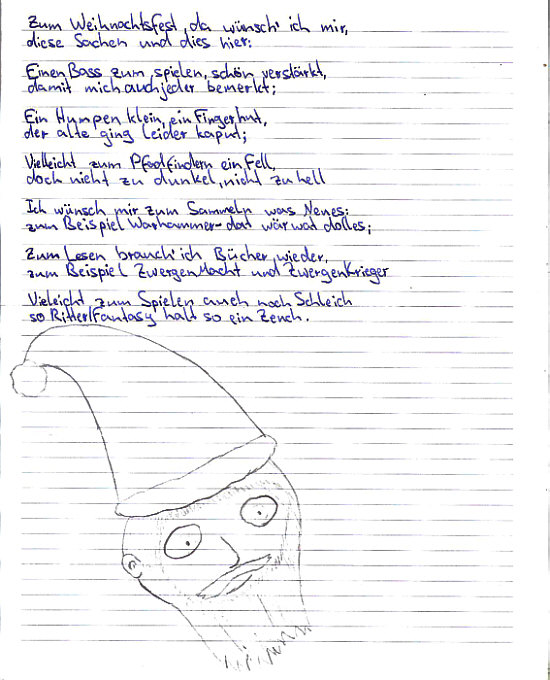 Zum Weihnachtsfest, da wünsch' ich mir,
diese Sachen und dies hier:
Einen Bass zum spielen, schön verstärkt,
damit mich auch jeder bemerkt;
Ein Humpen klein, ein Fingerhut,
der alte ging leider kaputt;
Vielleicht zum Pfadfindern ein Fell,
doch nicht zu dunkel, nicht zu hell
Ich wünsch mir zum Sammeln was Neues:
zum Beispiel Warhammer - dat wär wat dolles;
Zum Lesen brauch' ich Bücher wieder,
zum Beispiel ZwergenMacht und ZwergenKrieger
Vieleicht zum Spielen auch noch Schleich
so Ritter/Fantasy halt so ein Zeuch.